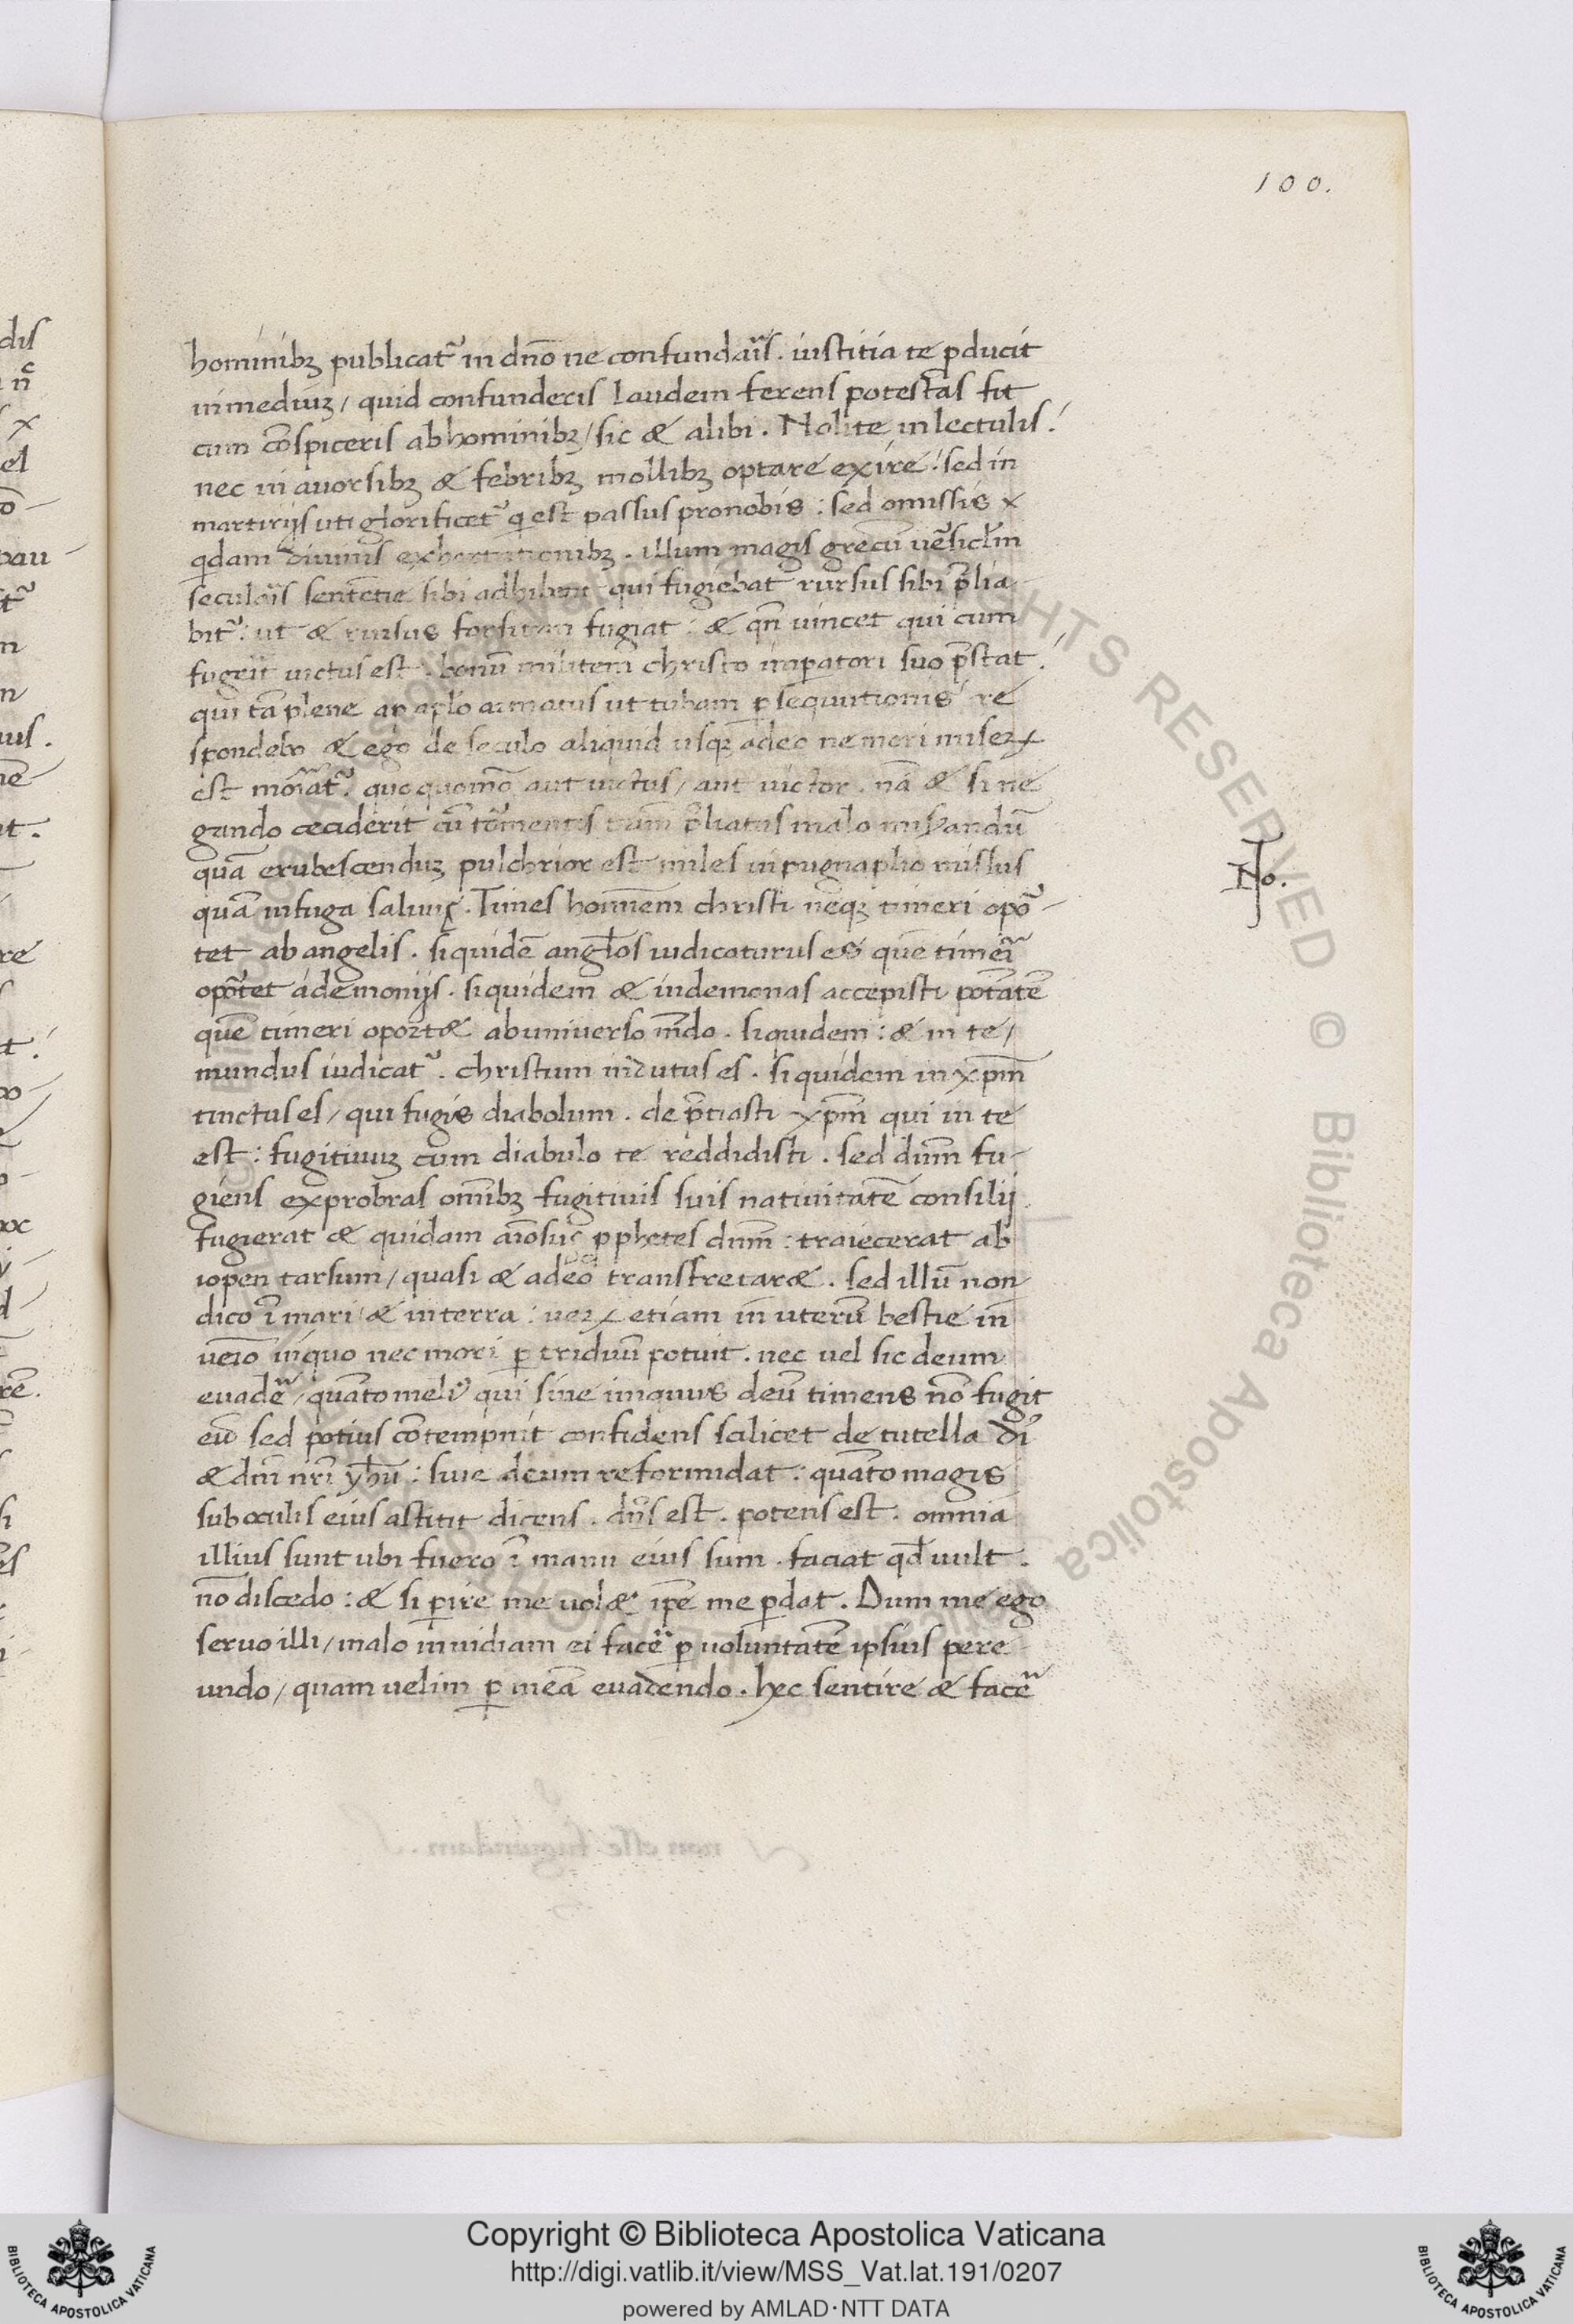 100.
hominibꝫ publicat᷑ in dn̄o ne confundar̄is. iustitia te ꝓducit
in mediuꝫ / quid confunderis laudem ferens potest̄as fit
cum cōspiceris ab hominibꝫ / sic & alibi. Nolite in lectulis!
nec in auorsibꝫ & febribꝫ mollibꝫ optare exire! sed in
martirijs uti glorificet᷑ q̄ est passus pro nobis: sed omissis x
qdam diuinis exhortationibꝫ. illum magis grecū uersiclm̄
secular̄is sentētie sibi adhibent qui fugiebat rursus sibi p̄lia
bit᷑: ut & rursus forsitan fugiat: & qn̄ uincet qui cum
fugerit uictus est. bonū militem christo imꝑatori suo p̄stat!
qui tā plene ap aplō armatus ut tubam ꝑsequutionis re
spondebo & ego de seculo aliquid usqꝫ adeo ne mori miseꝝ
est morat᷑. quo quomō aut uictus / aut uictor. nā & si ne
gando ceciderit cū tormentis tam̄ p̄liatus malo misandū
quā erubescenduꝫ pulchrior est miles in pugna plio missus
quā in fuga saluus. Times hominem christi neqꝫ timeri opor
tet ab angelis. siquidē angl̄os iudicaturus es quē timeri
oportet a demonijs. siquidem & in demonas accepisti potātē
quē timeri oport& ab uniuerso mn̄do. siquidem: & in te /
mundus iudicat᷑. christum indutus es. siquidem in xp̄m
tinctus es / qui fugis diabolum. de p̄tiasti xp̄m qui in te
est: fugitiuuꝫ cum diabulo te reddidisti. sed dn̄m fu-
giens exprobras omn̄ibꝫ fugitiuis suis natiuitatē consilij.
fugierat & quidam aiosus pphetes dn̄m: traiecerat ab
iopen tarsum / quasi & adeo transfretar&. sed illū non
dico ī mari & in terra: ueꝝ etiam in uterū bestie in
uēio in quo nec mori ꝑ triduū potuit. nec uel sic deum
euadere / quāto meli᷒ qui siue imquus deū timens nō fugit
eū sed potius cōtempnit confidens scilicet de tutella di
& dn̄i nr̄i yhu: siue deum reformidat: quāto magis
sub oculis eius astitit dicens. dn̄s est. potens est. omnia
illius sunt ubi fuero ī manu eius sum. faciat qd̄ uult.
nō discedo: & si ꝑire me uol& ip̄e me ꝑdat. Dum me ego
seruo illi / malo inuidiam ei facē ꝑ uoluntatē ipsius pere
undo / quam uelim ꝑ meā euadendo. hec sentire & facē
No.
Copyright © Biblioteca Apostolica Vaticana
http://digi.vatlib.it/view/MSS_Vat.lat.191/0207
powered by AMLAD·NTT DATA